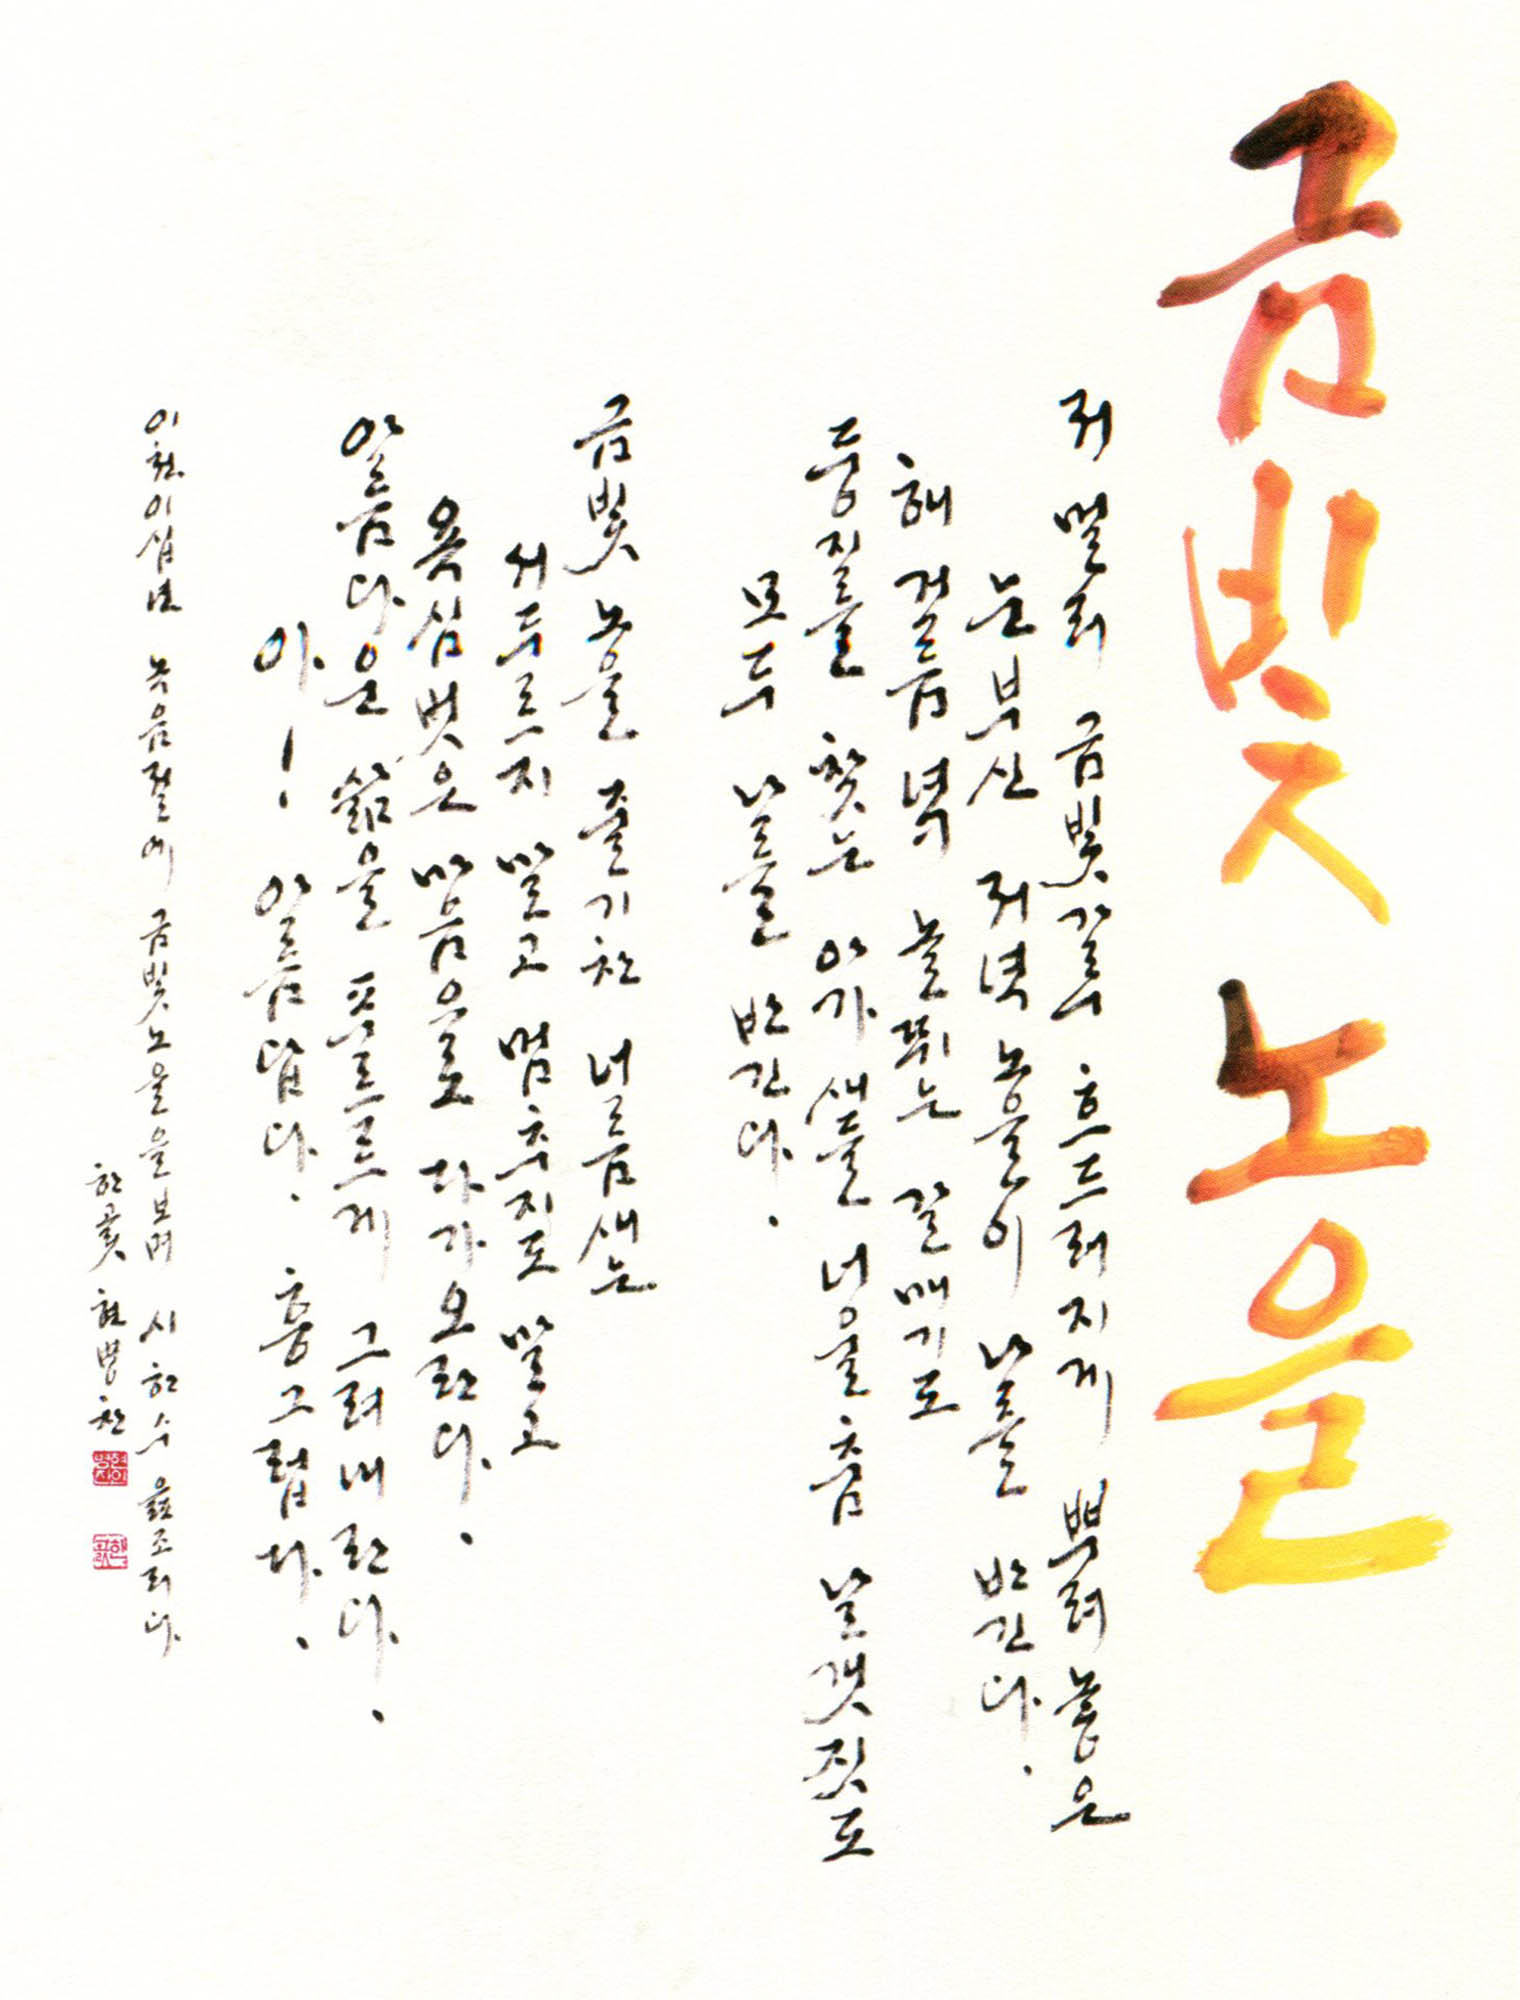 금빛 노을
저 멀리 금빛 가루 흐드러지게 뿌려 놓은
눈부신 저녁 노을이 나를 반긴다.
해 걸음 녘 눈 뛰는 갈매기도
둥지를 찾는 아가새들 너울춤 날갯짓도
모두 나를 반긴다.
금빛 노을 줄기찬 너름새는
서두르지 말고 멈추지도 말고
욕심 벗은 마음으로 다가오란다.
아름다운 삶을 푸르르게 그려내란다.
아! 아름답다. 흥그럽다.
이천이십년 녹음절에 금빛노을을 보며 시 한 수 읊조리다
한곬 현병찬